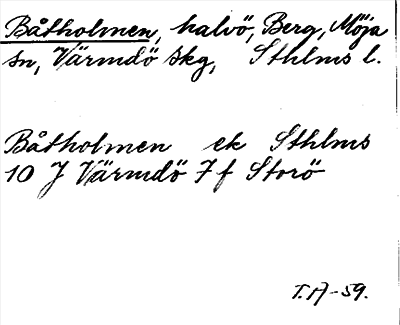 Båtholmen, halvö, Berg, Möja
sn, Värmdö skg, Sthlms l.
Båtholmen ek Sthlms
10 J Värmdö 7 f Storö
T.A-59.